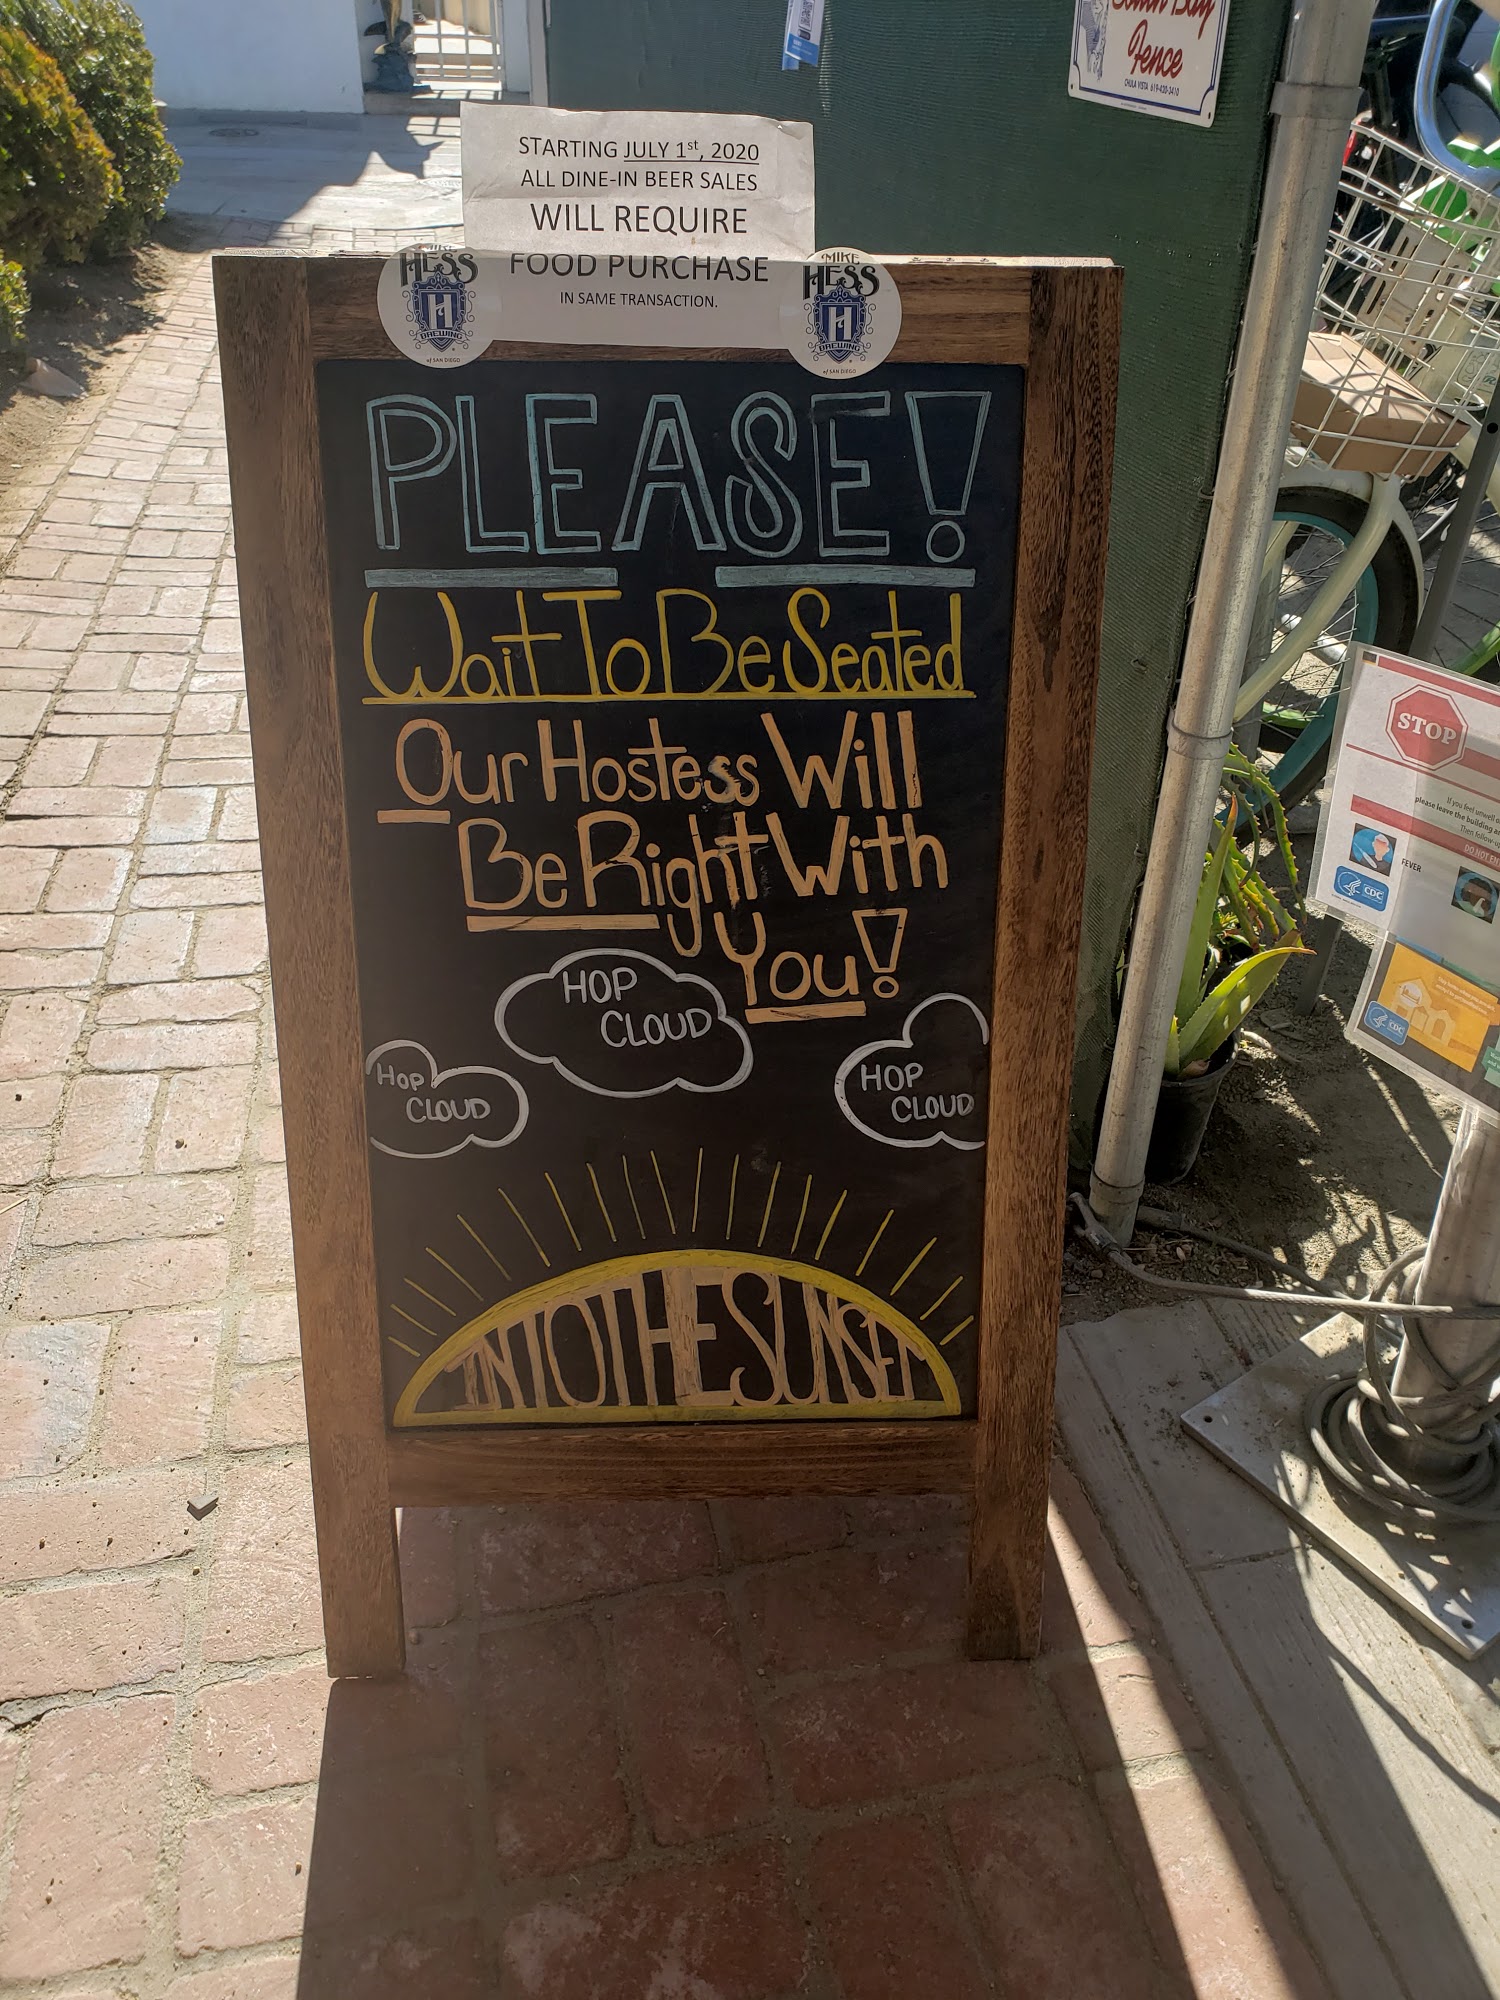 STARTING JULY 1st, 2020
ALL DINE-IN BEER SALES
WILL REQUIRE
FOOD PURCHASE
IN SAME TRANSACTION.
MIKE
HESS
H
BREWING
of SAN DIEGO
MIKE
HESS
H
BREWING
of SAN DIEGO
PLEASE!
Wait To Be Seated
Our Hostess Will
Be Right With
You!
HOP
CLOUD
HOP
CLOUD
HOP
CLOUD
INTO THE SUNSET
South Bay
Fence
CHULA VISTA 619-420-3410
STOP
If you feel unwell
please leave the building
Then follow
DO NOT EN
FEVER
CDC
CDC